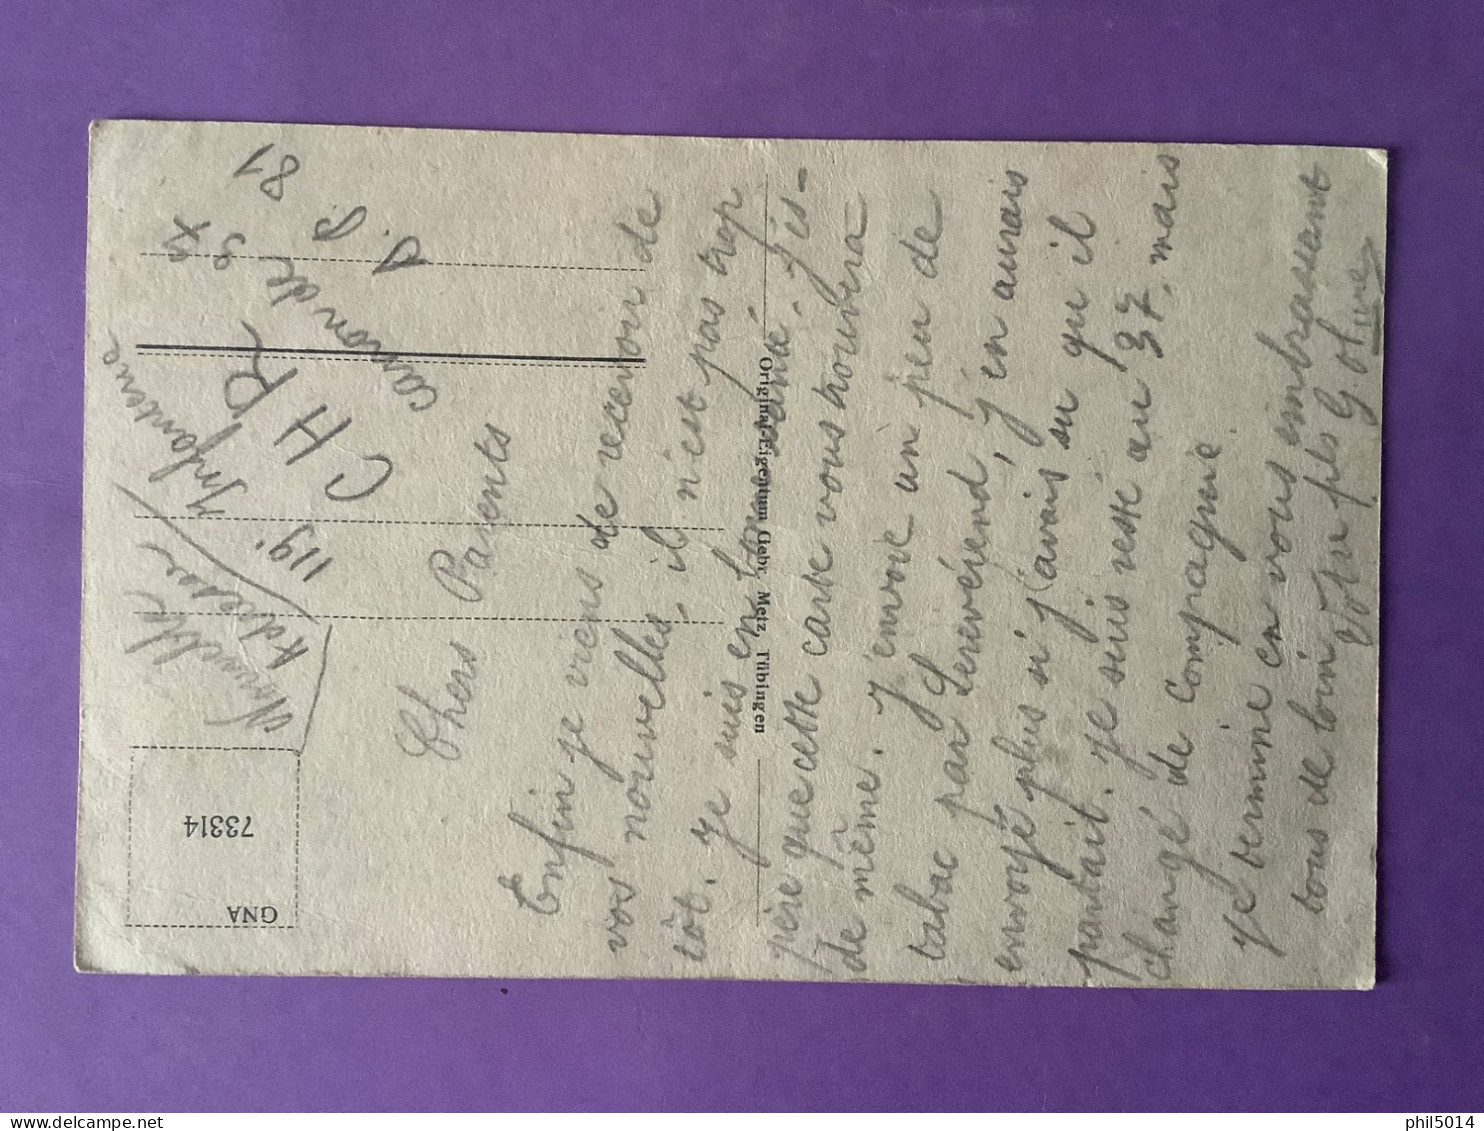 Nouvelle
Adresse
119' Infanterie
C H R
canon de 37
S. P 81
Chers Parents
Enfin je viens de recevoir de
vos nouvelles, il n'est pas trop
tôt. Je suis en bonne santé. J'es-
père que cette carte vous trouvera
de même. J'envoie un peu de
tabac par Lerévérend, j'en aurais
envoyé plus si j'avais su qu'il
partait. Je suis resté au 37, mais
changé de compagnie.
Je termine en vous embrassant
tous de loin. Votre fils G.
Original-Eigentum Gebr. Metz, Tübingen
73314
GNA
phil5014